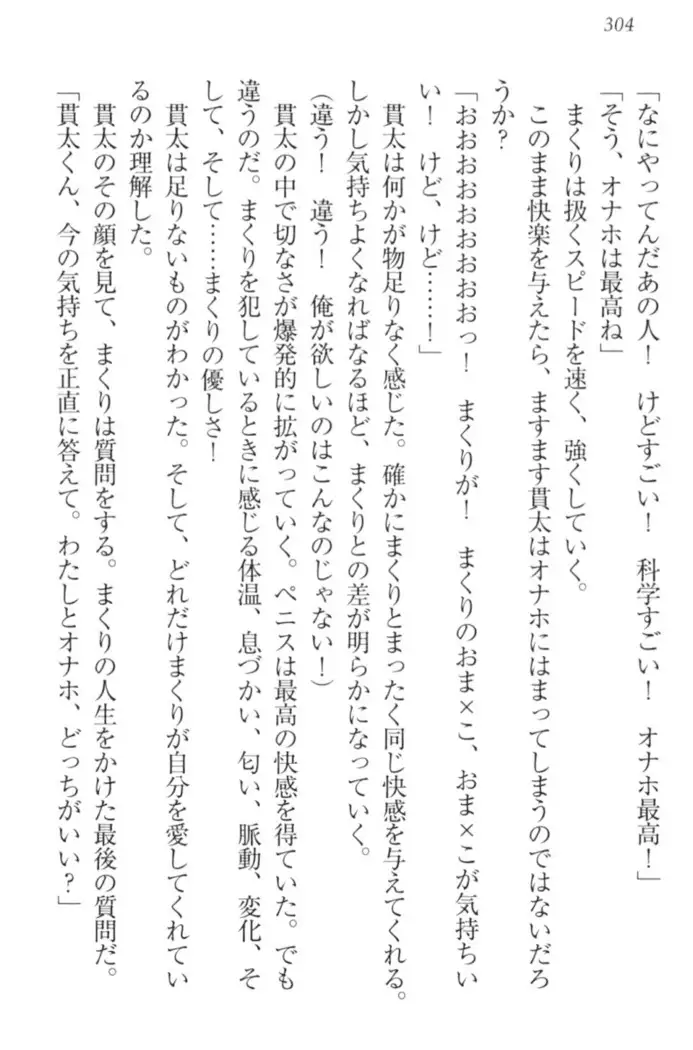 304
「なにやってんだあの人！　けどすごい！　科学すごい！　オナホ最高！」
「そう、オナホは最高ね」
　まくりは扱くスピードを速く、強くしていく。
　このまま快楽を与えたら、ますます貫太はオナホにはまってしまうのではないだろ
うか？
「おおおおおおおおおっ！　まくりが！　まくりのおま×こ、おま×こが気持ちい
い！　けど、けど……！」
　貫太は何かが物足りなく感じた。確かにまくりとまったく同じ快感を与えてくれる。
しかし気持ちよくなればなるほど、まくりとの差が明らかになっていく。
（違う！　違う！　俺が欲しいのはこんなのじゃない！）
　貫太の中で切なさが爆発的に拡がっていく。ペニスは最高の快感を得ていた。でも
違うのだ。まくりを犯しているときに感じる体温、息づかい、匂い、脈動、変化、そ
して、そして……まくりの優しさ！
　貫太は足りないものがわかった。そして、どれだけまくりが自分を愛してくれてい
るのか理解した。
　貫太のその顔を見て、まくりは質問をする。まくりの人生をかけた最後の質問だ。
「貫太くん、今の気持ちを正直に答えて。わたしとオナホ、どっちがいい？」